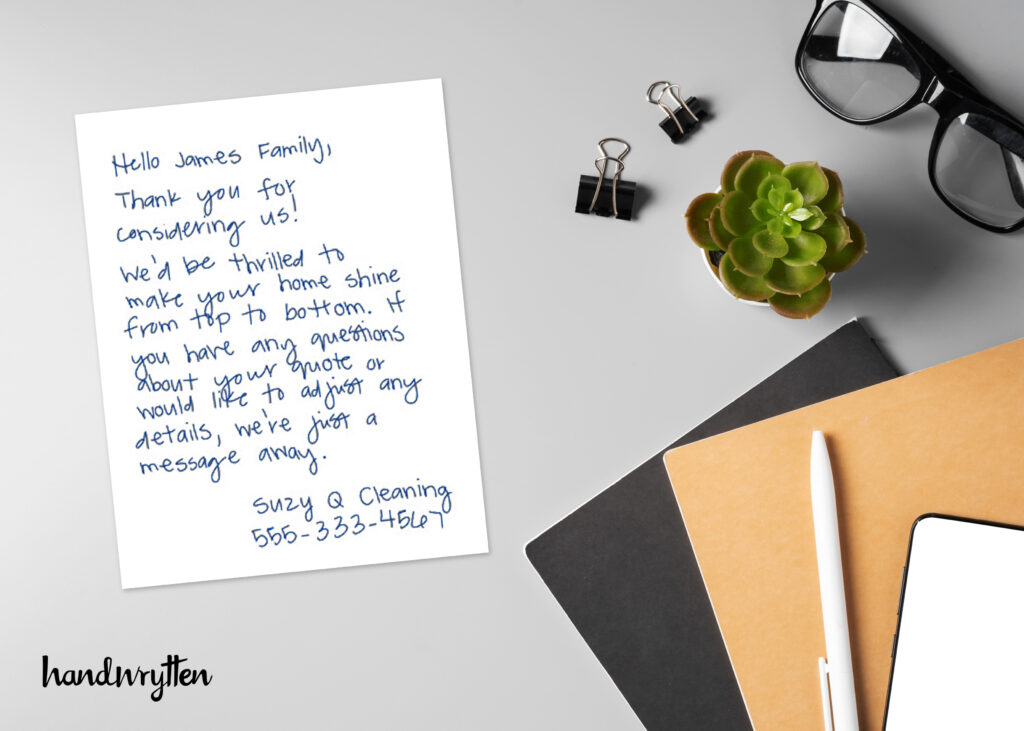 Hello James Family,
Thank you for
considering us!
We'd be thrilled to
make your home shine
from top to bottom. If
you have any questions
about your quote or
would like to adjust any
details, we're just a
message away.
Suzy Q Cleaning
555-333-4567
handwrytten